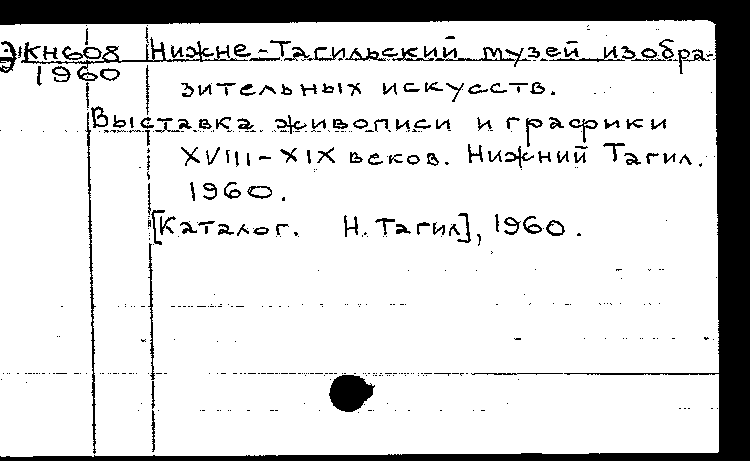 ЭКН608 Нижне-Тагильский музей изобра-
1960
зительных искусств.
Выставка живописи и графики
XVIII-XIX веков. Нижний Тагил.
1960.
[Каталог. Н. Тагил], 1960.